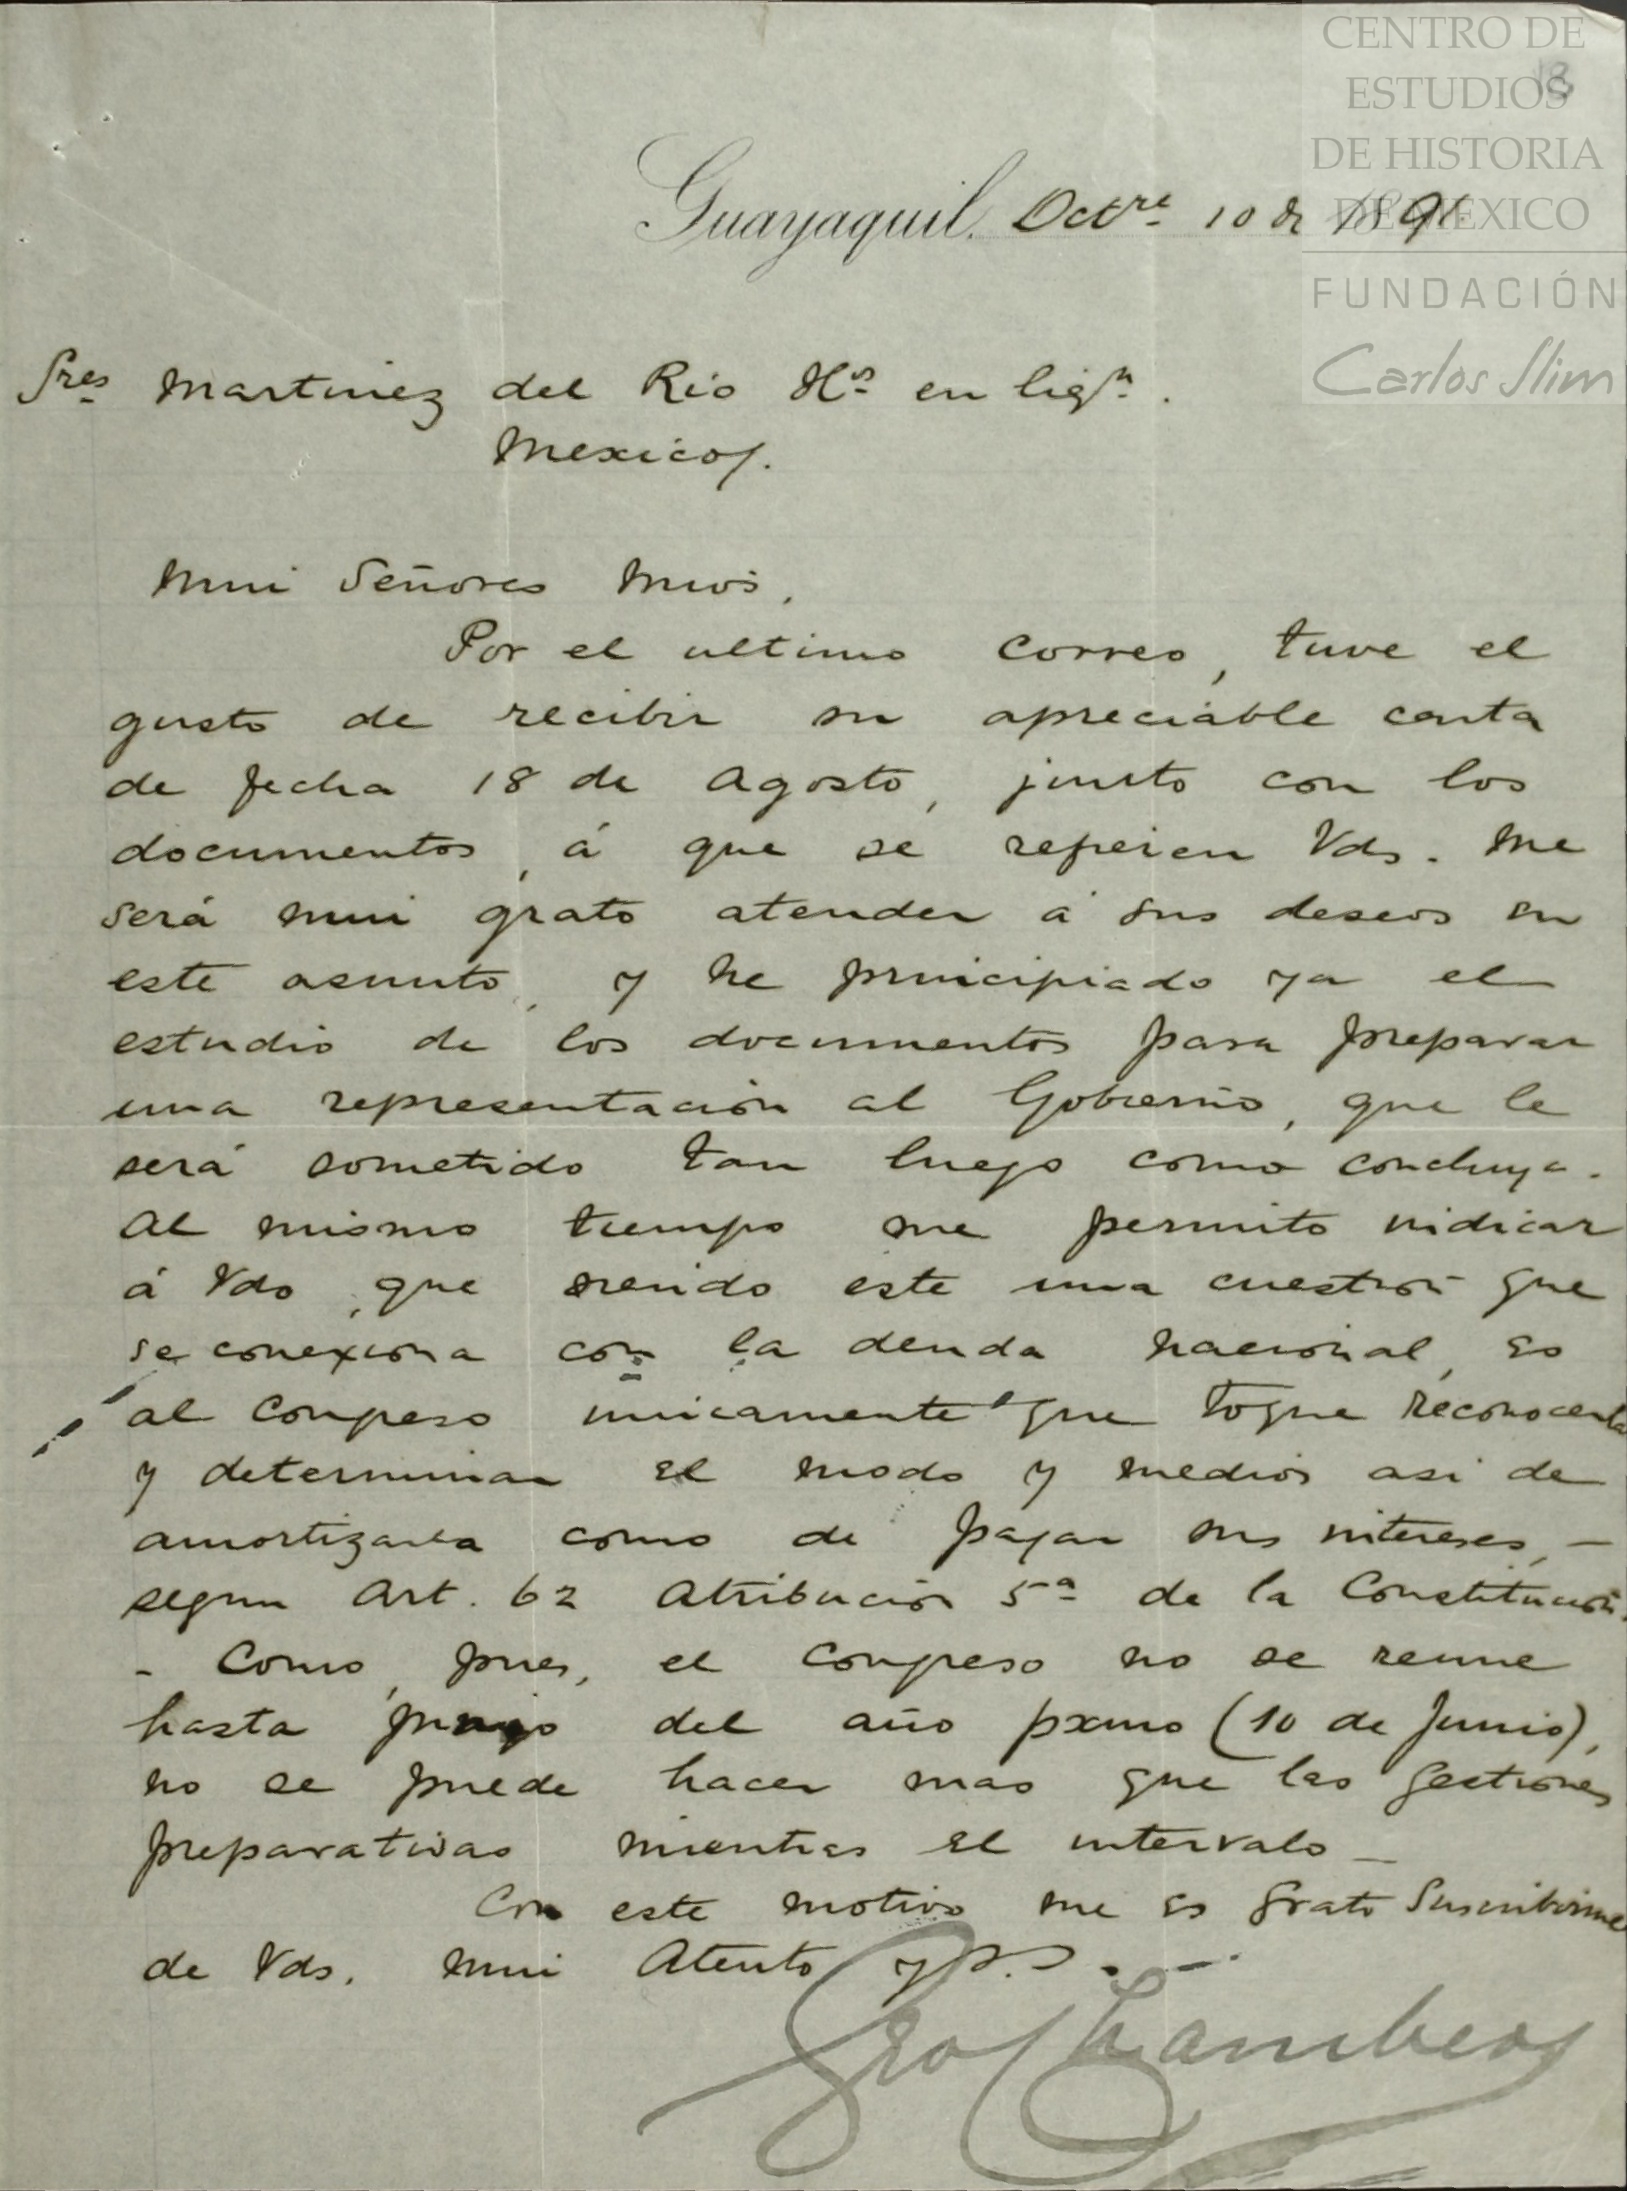 CENTRO DE
ESTUDIOS
DE HISTORIA
DE MEXICO
FUNDACIÓN
Carlos Slim
13
Guayaquil, Octre 10 de 1891
Sres Martinez del Rio Hs en liqn.
Mexico/.
Mui Señores mios,
Por el ultimo correo, tuve el
gusto de recibir su apreciable carta
de fecha 18 de Agosto, junto con los
documentos, á que se refeien Vds. Me
será mui grato atender á sus deseos en
este asunto, y he principiado ya el
estudio de los documentos para preparar
una representación al Gobierno, que le
será sometido tan luego como concluya.
Al mismo tiempo me permito indicar
á Vds, que siendo este una cuestion que
se conexiona con la deuda nacional, es
al Congreso unicamente que toque reconocerla
y determinar el modo y medios asi de
amortizarla como de pagar sus intereses, -
segun Art. 62 Atribución 5a de la Constitución.
- Como, pues, el Congreso no se reune
hasta junio del año pxmo (10 de Junio),
no se puede hacer mas que las gestiones
preparativas mientras el intervalo -
Con este motivo me es grato suscribirme
de Vds. mui Atento y S.S.
Geo Chambers